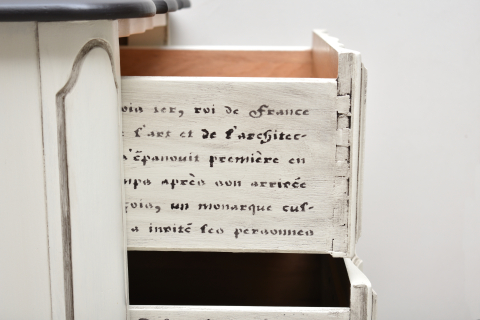 ois 1er, roi de France
l'art et de l'architec-
s'épanouit première en
mps après son arrivée
çois, un monarque cul-
a invité les personnes